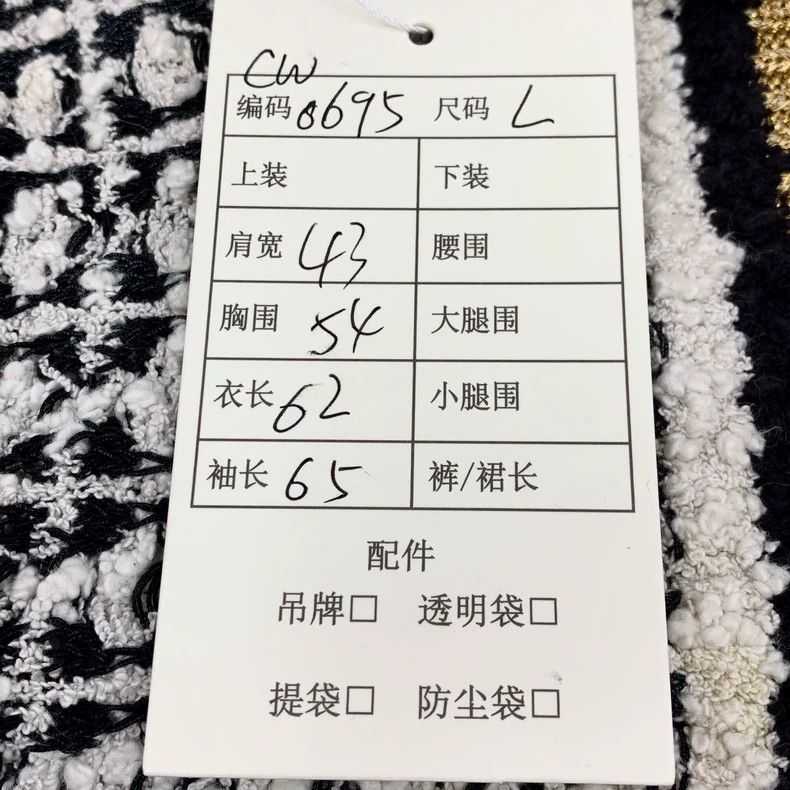 CW
编码 0695 尺码 L
上装 下装
肩宽 43 腰围
胸围 54 大腿围
衣长 62 小腿围
袖长 65 裤/裙长
配件
吊牌□ 透明袋□
提袋□ 防尘袋□